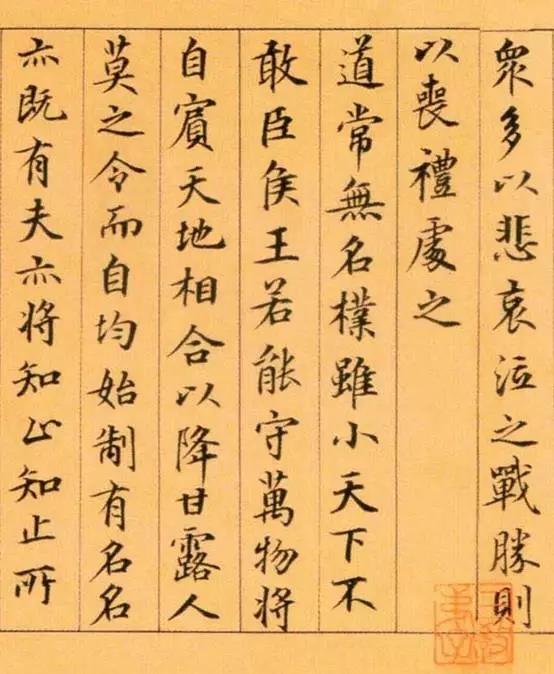 衆多以悲哀泣之戰勝則
以喪禮處之
道常無名樸雖小天下不
敢臣侯王若能守萬物將
自賓天地相合以降甘露人
莫之令而自均始制有名名
亦既有夫亦将知止知止所